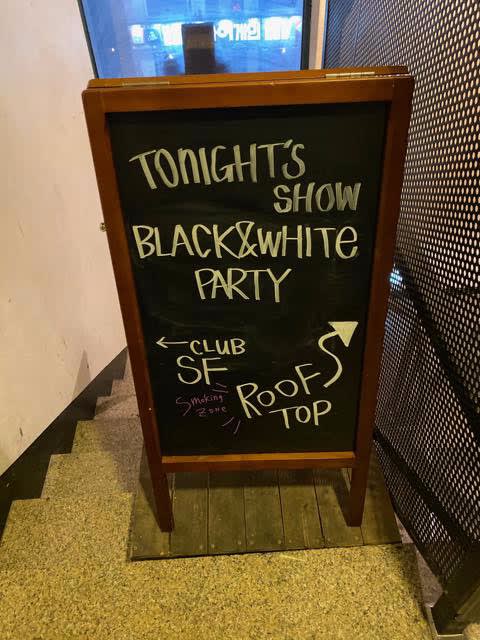 TONIGHT'S
SHOW
BLACK&WHITE
PARTY
←CLUB
SF
Smoking
Zone
ROOF
TOP